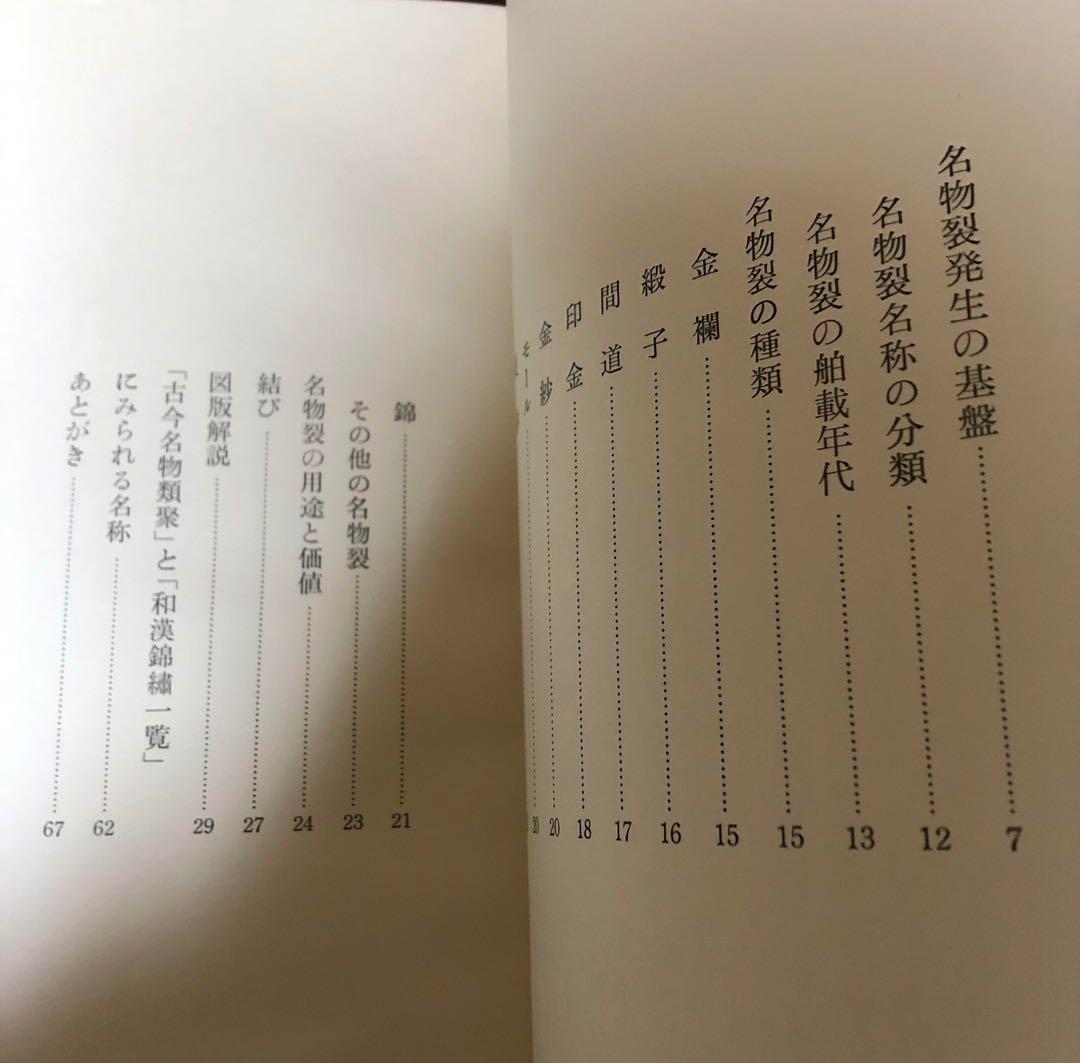 名物裂発生の基盤……………………7
名物裂名称の分類……………………12
名物裂の舶載年代……………………13
名物裂の種類……………………15
金襴……………………15
緞子……………………16
間道……………………17
印金……………………18
金紗……………………20
モール……………………20
錦……………………21
その他の名物裂……………………23
名物裂の用途と価値……………………24
結び……………………27
図版解説……………………29
「古今名物類聚」と「和漢錦繡一覧」
にみられる名称……………………62
あとがき……………………67